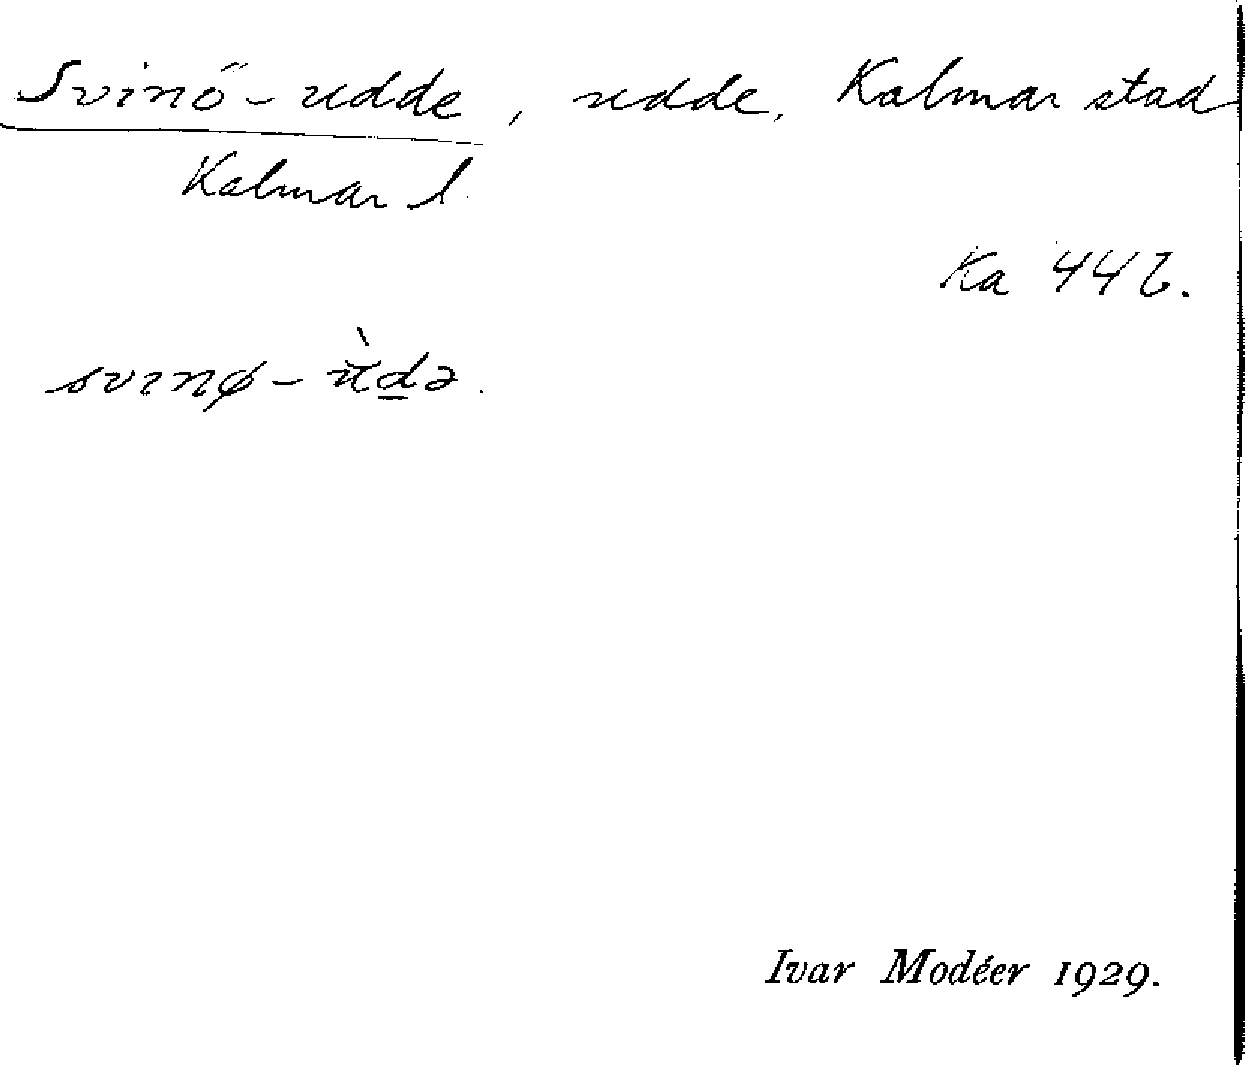 Svinö-udde, udde, Kalmar stad
Kalmar l.
Ka 446.
svinø-ùdə.
Ivar Modéer 1929.